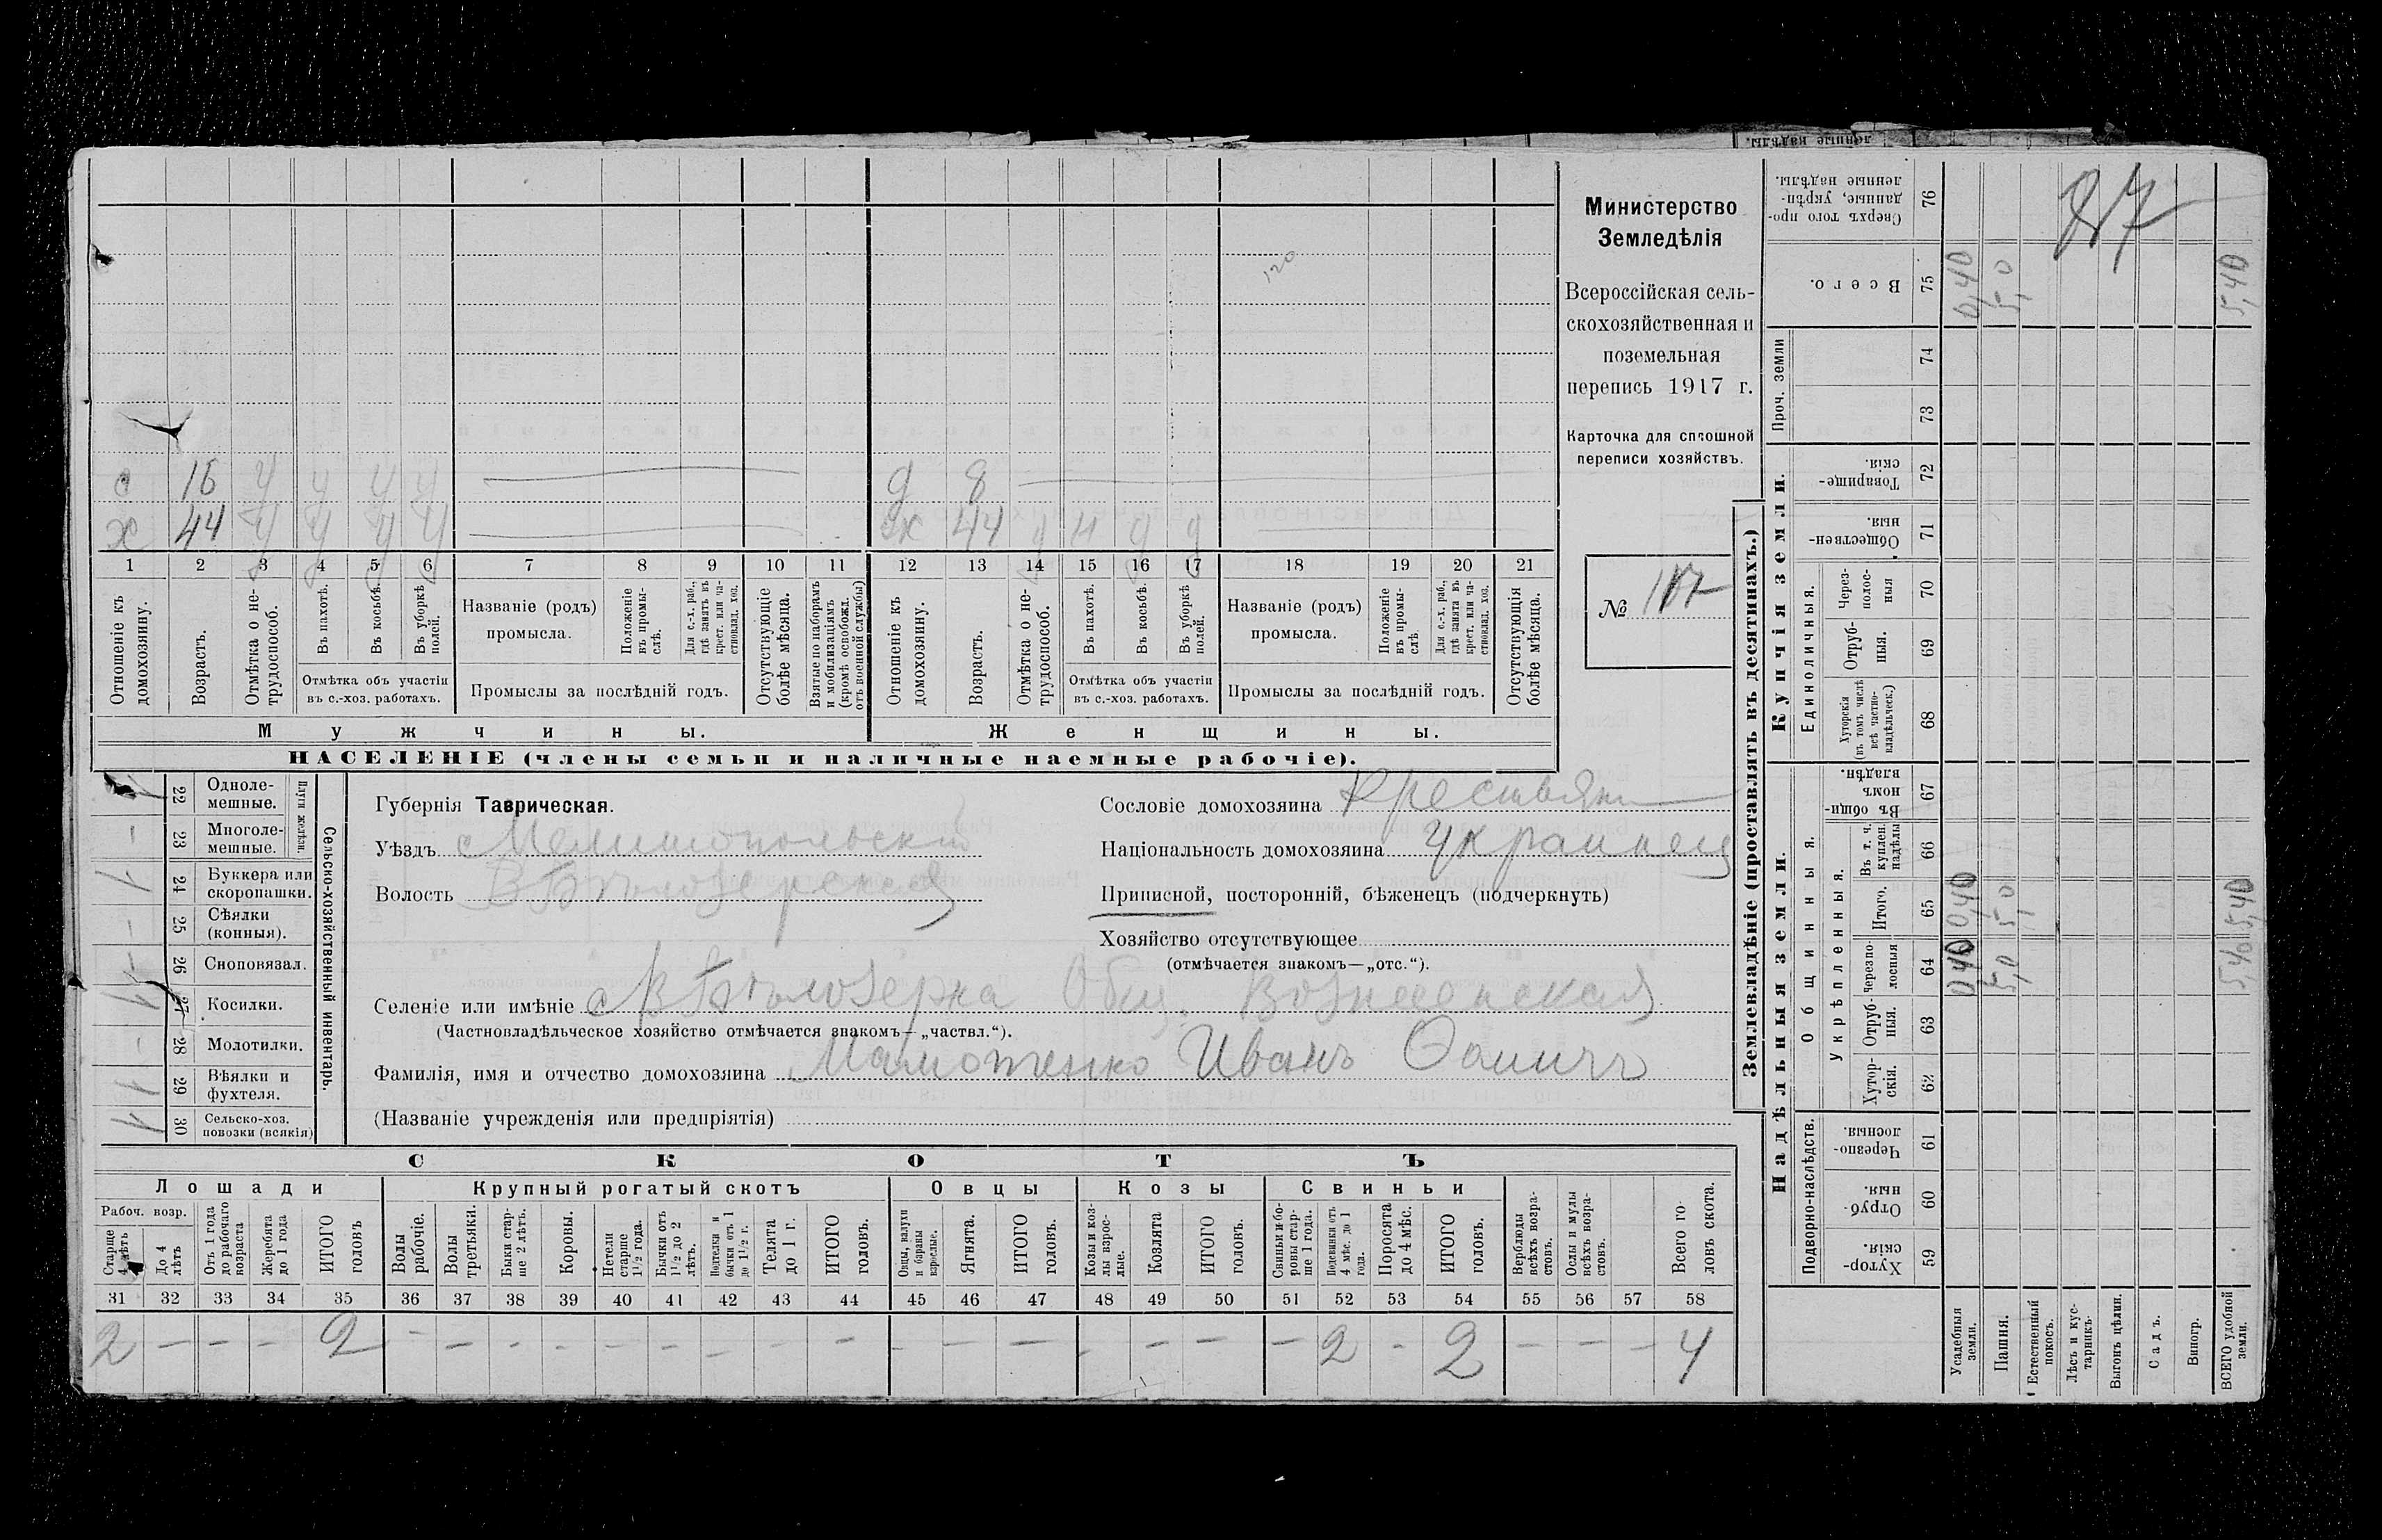 с 16 у у у у д 8
х 44 у у у у ж 44 у н у у
1 2 3 4 5 6 7 8 9 10 11 12 13 14 15 16 17 18 19 20 21
Отношеніе къ домохозяину.
Возрастъ.
Отмѣтка о нетрудоспособ.
Въ пахотѣ.
Въ косьбѣ.
Въ уборкѣ полей.
Отмѣтка объ участіи
въ с.-хоз. работахъ.
Названіе (родъ)
промысла.
Положеніе въ промыслѣ.
Для с.-х. раб., гдѣ занятъ въ крест. или частновлад. хоз.
Промыслы за послѣдній годъ.
Отсутствующіе болѣе мѣсяца.
Взятые по наборамъ и мобилизаціямъ (кромѣ освобожд. отъ военной службы)
Отношеніе къ домохозяину.
Возрастъ.
Отмѣтка о нетрудоспособ.
Въ пахотѣ.
Въ косьбѣ.
Въ уборкѣ полей.
Отмѣтка объ участіи
въ с.-хоз. работахъ.
Названіе (родъ)
промысла.
Положеніе въ промыслѣ.
Для с.-х. раб., гдѣ занята въ крест. или частновлад. хоз.
Промыслы за послѣдній годъ.
Отсутствующія болѣе мѣсяца.
Мужчины. Женщины.
НАСЕЛЕНІЕ (члены семьи и наличные наемные рабочіе).
120
Министерство
Земледѣлія
Всероссійская сель-
скохозяйственная и
поземельная
перепись 1917 г.
Карточка для сплошной
переписи хозяйствъ.
№ 187
Сельско-хозяйственный инвентарь.
Плуги желѣзн.
22 Одноле-
мешные.
23 Многоле-
мешные.
24 Буккера или
скоропашки.
25 Сѣялки
(конныя).
26 Сноповязал.
27 Косилки.
28 Молотилки.
29 Вѣялки и
фухтеля.
30 Сельско-хоз.
повозки (всякія)
Губернія Таврическая.
Уѣздъ Мелитопольскій
Волость В Бѣлозерская
Сословіе домохозяина Крестьян
Національность домохозяина украинец
Приписной, посторонній, бѣженецъ (подчеркнуть)
Хозяйство отсутствующее
(отмѣчается знакомъ—„отс.“).
Селеніе или имѣніе с В Бѣлозерка Общ. Вознесенская
(Частновладѣльческое хозяйство отмѣчается знакомъ—„частвл.“).
Фамилія, имя и отчество домохозяина Мамотенко Иванъ Фомичъ
(Названіе учрежденія или предпріятія)
СКОТЪ
Лошади Крупный рогатый скотъ Овцы Козы Свиньи
Рабоч. возр.
Старше 4 лѣтъ
До 4 лѣтъ
Отъ 1 года до рабочаго возраста
Жеребята до 1 года
ИТОГО головъ
Волы рабочіе.
Волы третьяки.
Быки старше 2 лѣтъ.
Коровы.
Нетели старше 1½ года.
Бычки отъ 1½ до 2 лѣтъ.
Подтелки и бычки отъ 1 до 1½ г.
Телята до 1 г.
ИТОГО головъ.
Овцы, валухи и бараны взрослые.
Ягнята.
ИТОГО головъ.
Козы и козлы взрослые.
Козлята
ИТОГО головъ.
Свиньи и боровы старше 1 года.
Подсвинки отъ 4 мѣс. до 1 года.
Поросята до 4 мѣс.
ИТОГО головъ.
Верблюды всѣхъ возрастовъ.
Ослы и мулы всѣхъ возрастовъ.
Всего головъ скота.
31 32 33 34 35 36 37 38 39 40 41 42 43 44 45 46 47 48 49 50 51 52 53 54 55 56 57 58
2 — — — 2 — — — — — — — — — — — — — — — — 2 — 2 — — — 4
Землевладѣніе (проставлять въ десятинахъ.)
Надѣльныя земли.
Купчія земли.
Проч. земли
Подворно-наслѣдств.
Общинныя.
Укрѣпленныя.
Единоличныя.
Сверхъ того проданные, укрѣпленные надѣлы. 76
Всего. 75 0,40 5,0 5,40
74
73
Товарищескія. 72
Общественныя. 71
Черезполосныя 70
Отрубныя. 69
Хуторскія (въ томъ числѣ всѣ частновладѣльческ.) 68
Въ общинномъ владѣн. 67
Въ т. ч. куплен. надѣлы 66
Итого. 65 0,40 5,0 5,40
Черезполосныя 64 0,40 5,0 5,40
Отрубныя. 63
Хуторскія. 62
Черезполосныя. 61
Отрубныя. 60
Хуторскія. 59
Усадебныя земли.
Пашня.
Естественный покосъ.
Лѣсъ и кустарникъ.
Выгонъ цѣлин.
Садъ.
Виногр.
ВСЕГО удобной земли.